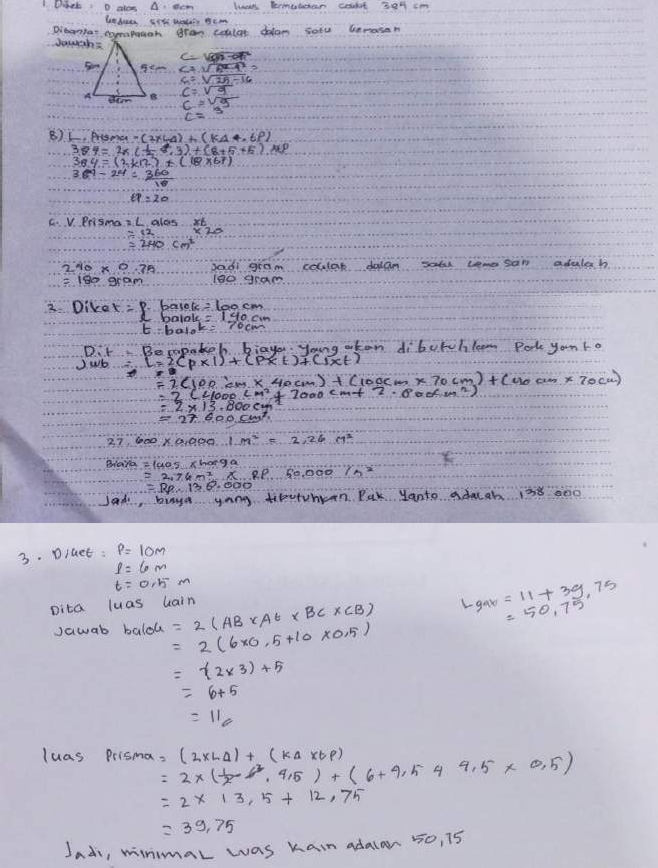 1. Diket : D alas Δ = 8cm luas Permukaan coklat 384 cm
kedua sisi 5cm
Ditanya = gram coklat dalam satu kemasan
Jawab =
5cm 5cm
A 8cm B
C = √25-16
C = √9
C = √9
C = 3
B) L. Prisma = (2xLΔ) + (KΔ . tP)
384 = 2x (1/2 8,3) + (8+5+5) xtP
384 = (2x12) + (18 xtP)
384 - 24 = 360
18
tP = 20
C. V. Prisma = L alas xt
= 12 x 20
= 240 cm³
240 x 0,75 Jadi gram coklat dalam satu kemasan adalah
= 180 gram 180 gram
2. Diket = P. balok = 100 cm
l balok = 40 cm
t. balok = 70 cm
Dit = Berapakah biaya yang akan dibutuhkan Pak yanto
Jwb = L = 2(pxl) + (Pxt) + (lxt)
= 2(100 cm x 40cm) + (100cm x 70 cm) + (40 cm x 70cm)
= 2 (4000 cm² + 7000 cm + 2.800cm²)
= 2 x 13.800 cm
= 27 600 cm².
27.600 x 0,000 1 m² = 2,76 m²
Biaya = luas x harga
= 2,76 m² x RP 50.000 /m²
= RP. 138.000
Jadi, biaya yang dibutuhkan Pak Yanto adalah 138.000
3. Diket : P = 10m
l = 6 m
t = 0,5 m
Dita luas kain
L gab = 11 + 39,75
= 50,75
Jawab balok = 2 (AB x At x BC x CB)
= 2 (6x0,5+10 x0,5)
= (2x3) + 5
= 6+5
= 11
luas Prisma = (2xLΔ) + (KΔ xtP)
= 2 x (1/2 6, 4,5) + (6+4,5 4 4,5 x 0,5)
= 2 x 13,5 + 12,75
= 39,75
Jadi, minimal luas kain adalah 50,75